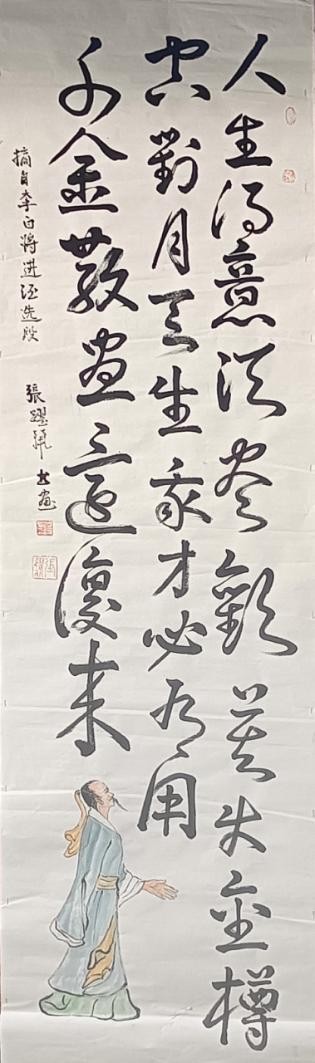 人生得意須尽歡莫使金樽
空對月天生我才必有用
千金散盡還復来
摘自李白將進酒选段
張躍 书画